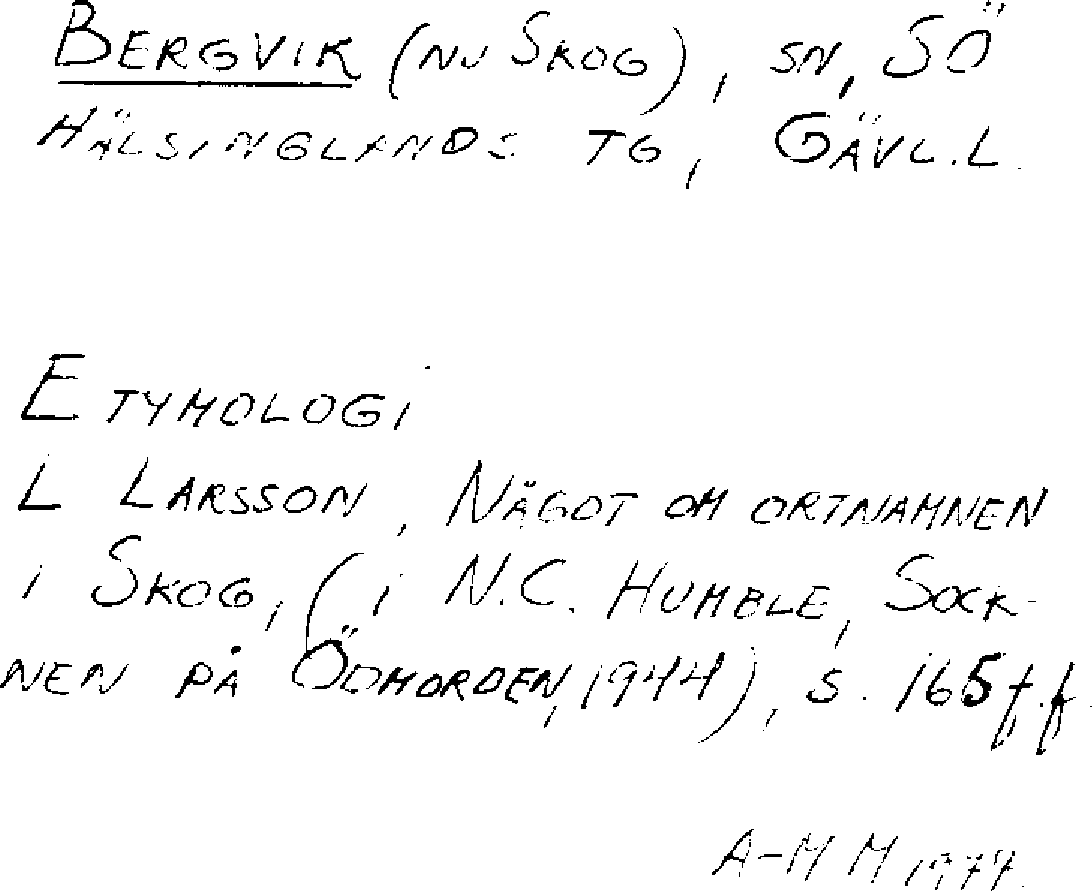 BERGVIK (NU SKOG), SN, SÖ
HÄLSINGLANDS TG, GÄVL.L.
ETYMOLOGI
L LARSSON, NÅGOT OM ORTNAMNEN
I SKOG, (I N.C. HUMBLE, SOCK-
NEN PÅ ÖDMORDEN, 1944), S. 165 f.f.
A-M M